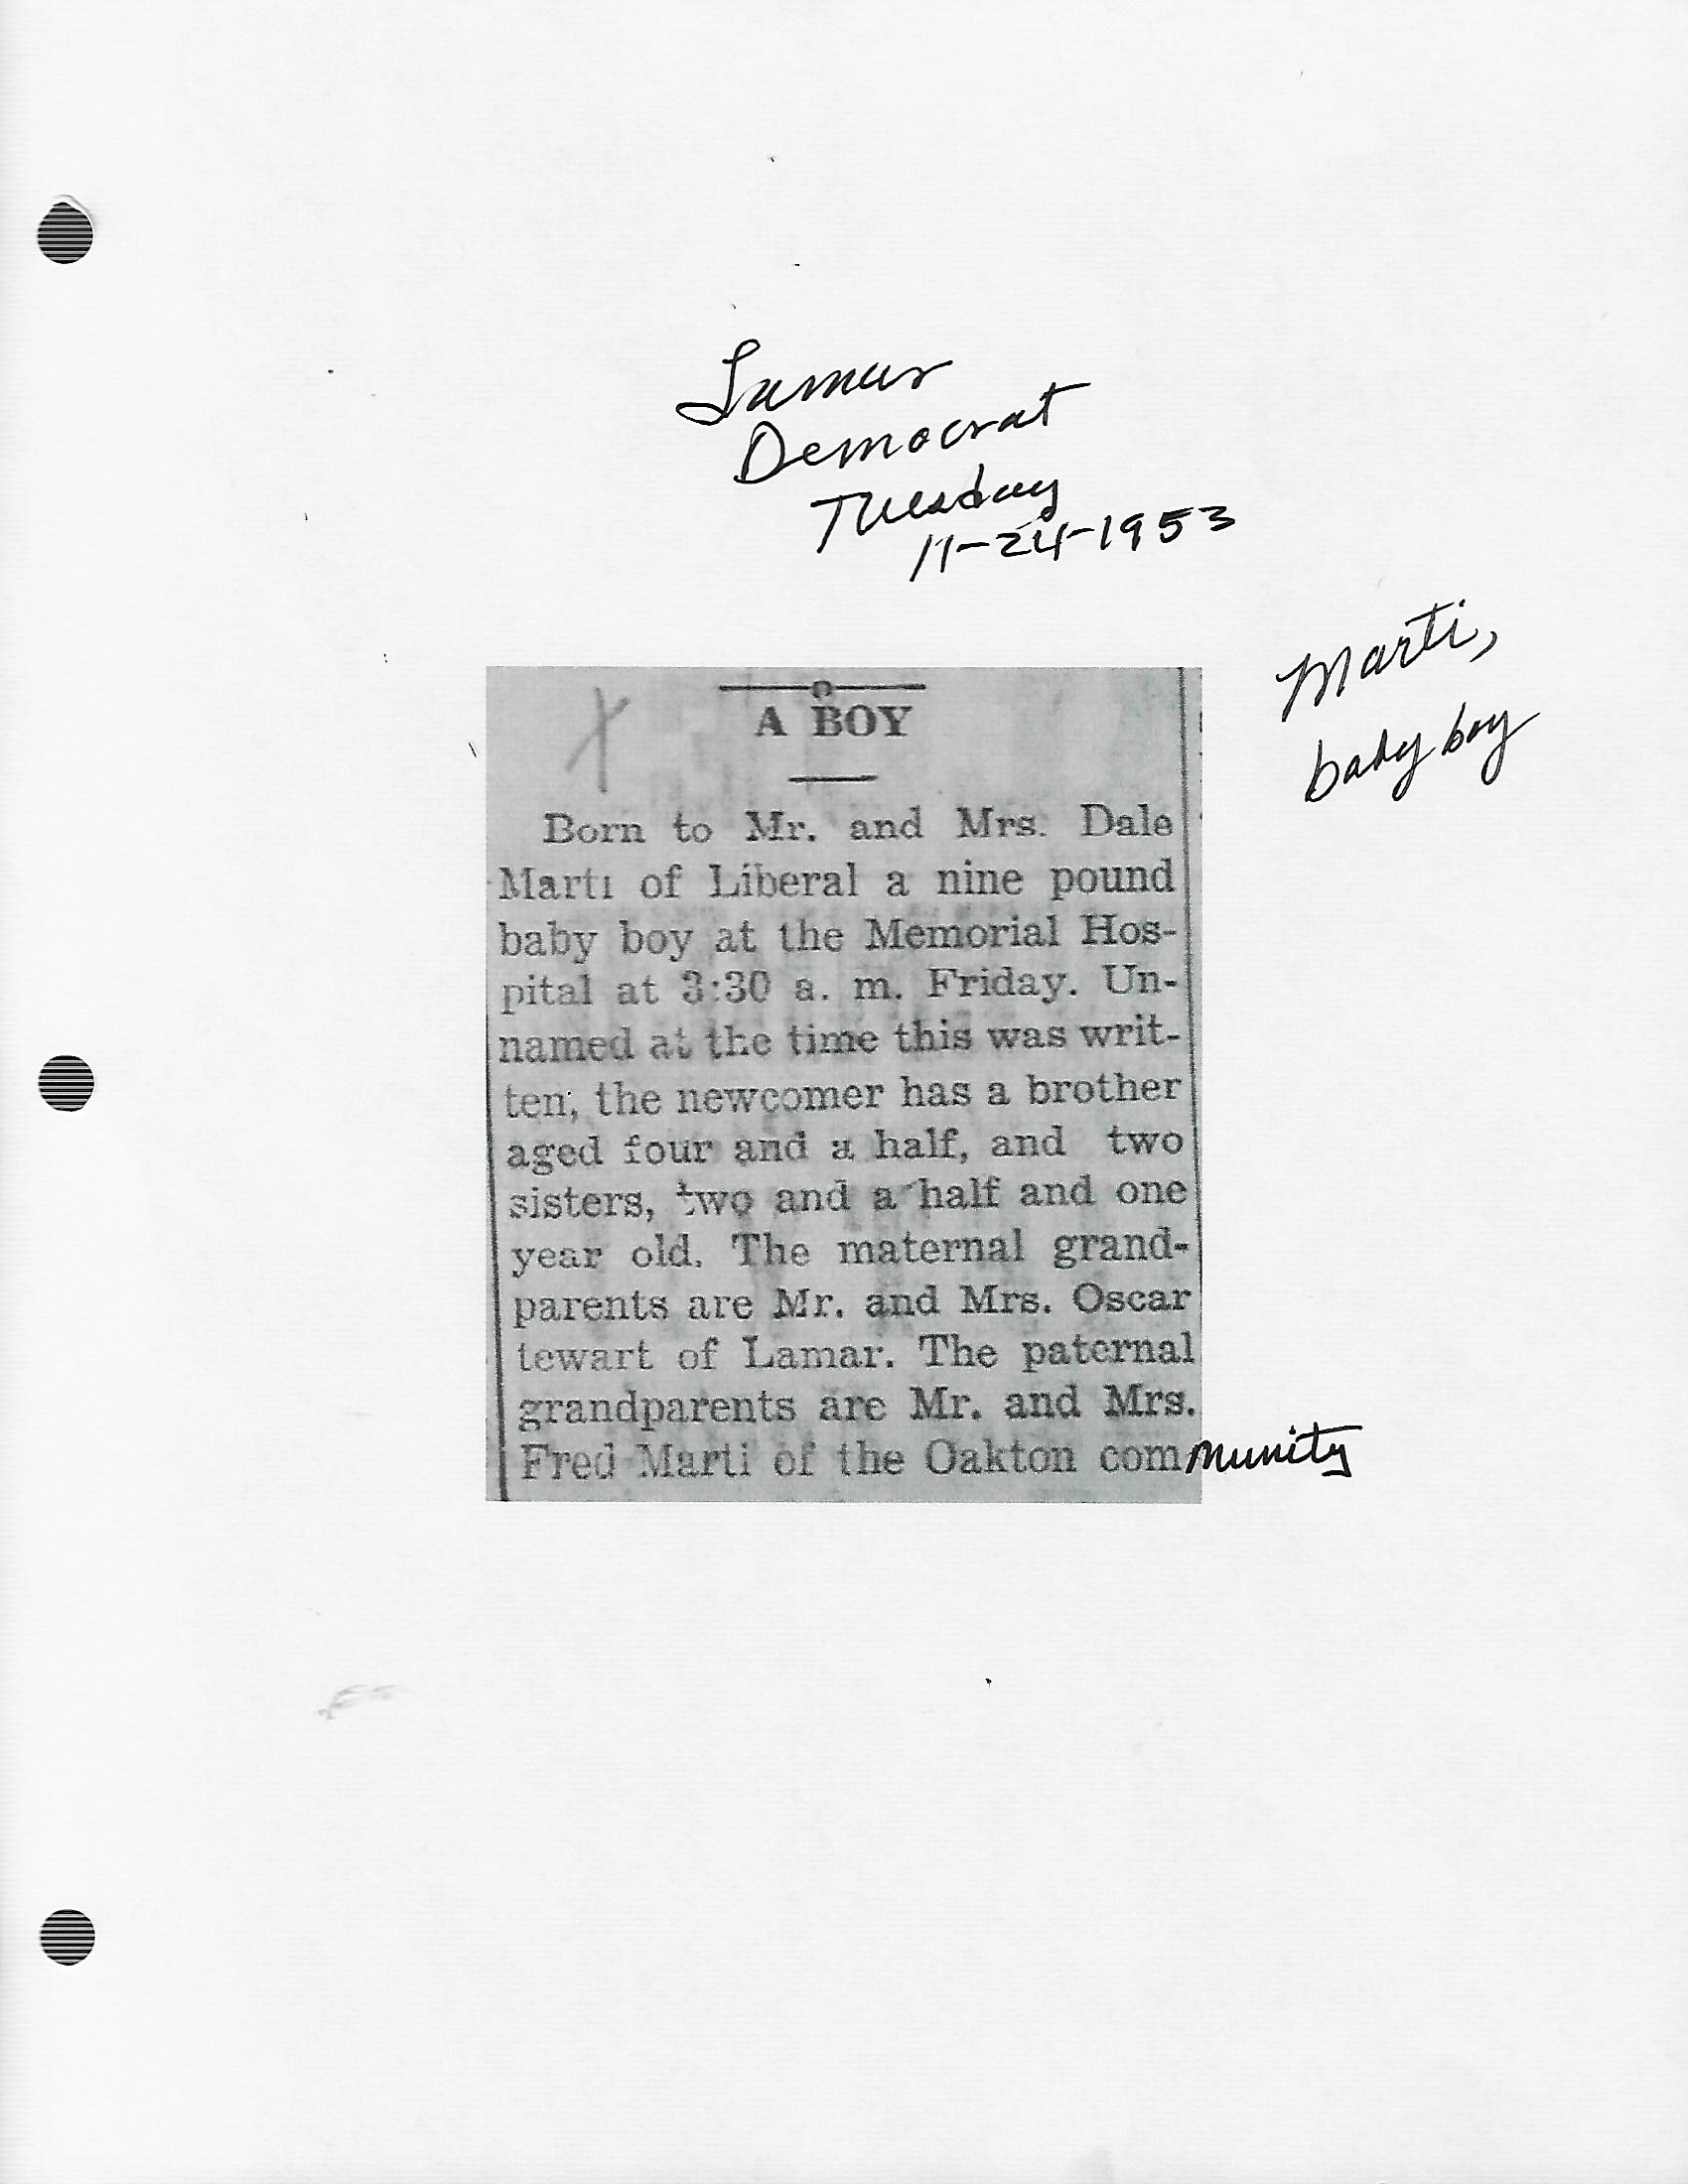 Lamar
Democrat
Tuesday
11-24-1953
Marti,
baby boy
A BOY
Born to Mr. and Mrs. Dale
Marti of Liberal a nine pound
baby boy at the Memorial Hos-
pital at 3:30 a. m. Friday. Un-
named at the time this was writ-
ten, the newcomer has a brother
aged four and a half, and two
sisters, two and a half and one
year old. The maternal grand-
parents are Mr. and Mrs. Oscar
tewart of Lamar. The paternal
grandparents are Mr. and Mrs.
Fred Marti of the Oakton community